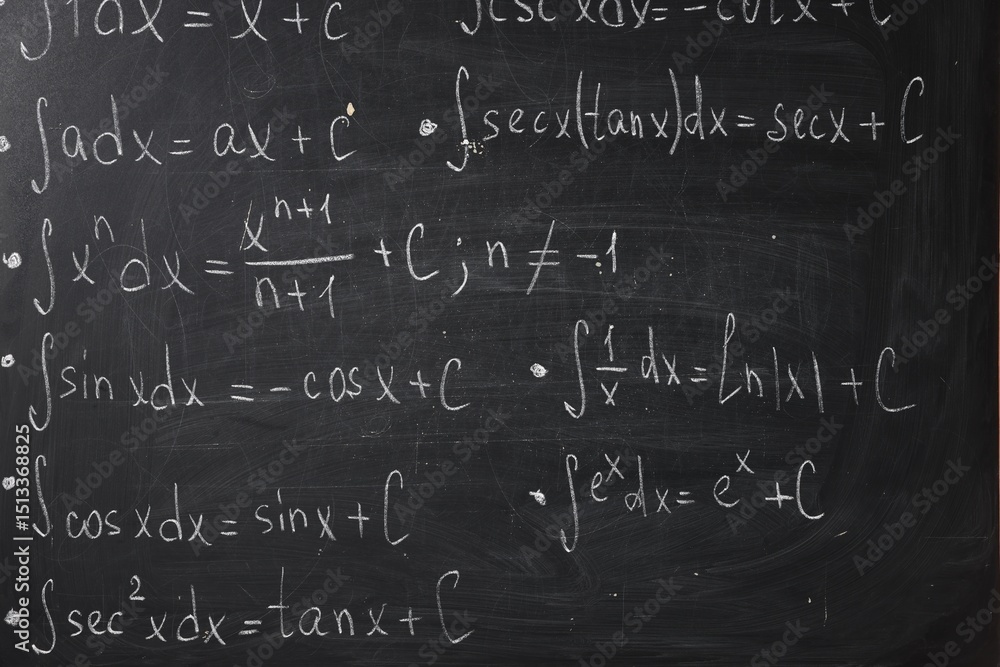 ∫1dx = x + C
∫csc²xdx = -cotx + C
∫adx = ax + C
∫secx(tanx)dx = secx + C
∫xⁿdx = xⁿ⁺¹/n+1 + C; n ≠ -1
∫sinxdx = -cosx + C
∫1/x dx = ln|x| + C
∫cosxdx = sinx + C
∫eˣdx = eˣ + C
∫sec²xdx = tanx + C
Adobe Stock | #1513368825